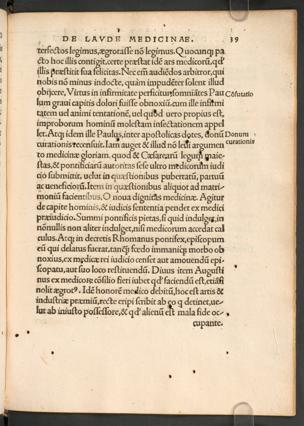 DE LAVDE MEDICINAE. 39
tersectos legimus, ægrotasse nō legimus. Quocunqȝ pa
cto hoc illis contigit, certe præstat idē ars medicorū, qd'
illis præstitit sua felicitas. Nec em̄ audiēdos arbitror, qui
nobis nō minus indocte, quàm impudēter solent illud
obijcere, Virtus in infirmitate perficitur, somniātes Pau
Cōfutatio
lum graui capitis dolori fuisse obnoxiū, cum ille infirmi
tatem uel animi tentationē, uel quod uero propius est,
improborum hominū molestam insectationem appel
let. Atqȝ idem ille Paulus, inter apostolicas dotes, donū
Donum
curationis recensuit. Iam auget & illud nō leui argumen
curationis
to medicinæ gloriam, quod & Cæsarearū legum maie-
stas, & pontificiarū autoritas sese ultro medicorum iudi
cio submittit, uelut in quæstionibus pubertatis, partus
ac ueneficiorū. Item in quæstionibus aliquot ad matri-
moniū facientibus. O noua dignitas medicinæ. Agitur
de capite hominis, & iudicis sententia pendet ex medici
præiudicio. Summi pontificis pietas, si quid indulget, in
nonullis non aliter indulget, nisi medicorum accedat cal
culus. Atqȝ in decretis Romanus pontifex, episcopum
eū qui delatus fuerat, tanqȝ fœdo immaniqȝ morbo ob
noxius, ex medicæ rei iudicio censet aut amouendū epi-
scopatu, aut suo loco restituendū. Diuus item Augusti
nus ex medicorū cōsilio fieri iubet qd' faciendū est, etiāsi
nolit ægrotꝰ. Idē honorē medico debitū, hoc est artis &
industriæ præmiū, recte eripi scribit ab eo q detinet, ue-
lut ab iniusto possessore, & qd' alienū est mala fide oc-
cupante.